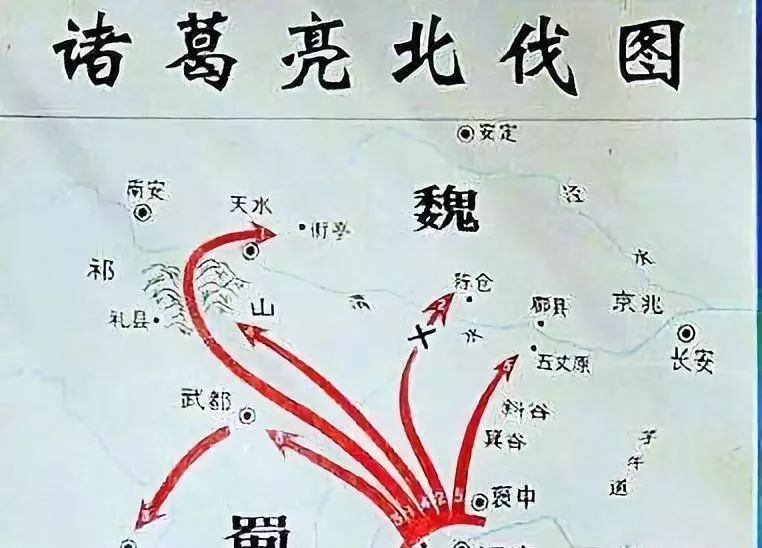 诸葛亮北伐图
安定
南安
天水
街亭
魏
泾
水
祁
山
礼县
渭
水
陈仓
郿县
京兆
长安
五丈原
武都
斜谷
箕谷
子午道
褒中
蜀
1
2
5
3
3
1
4
2
5